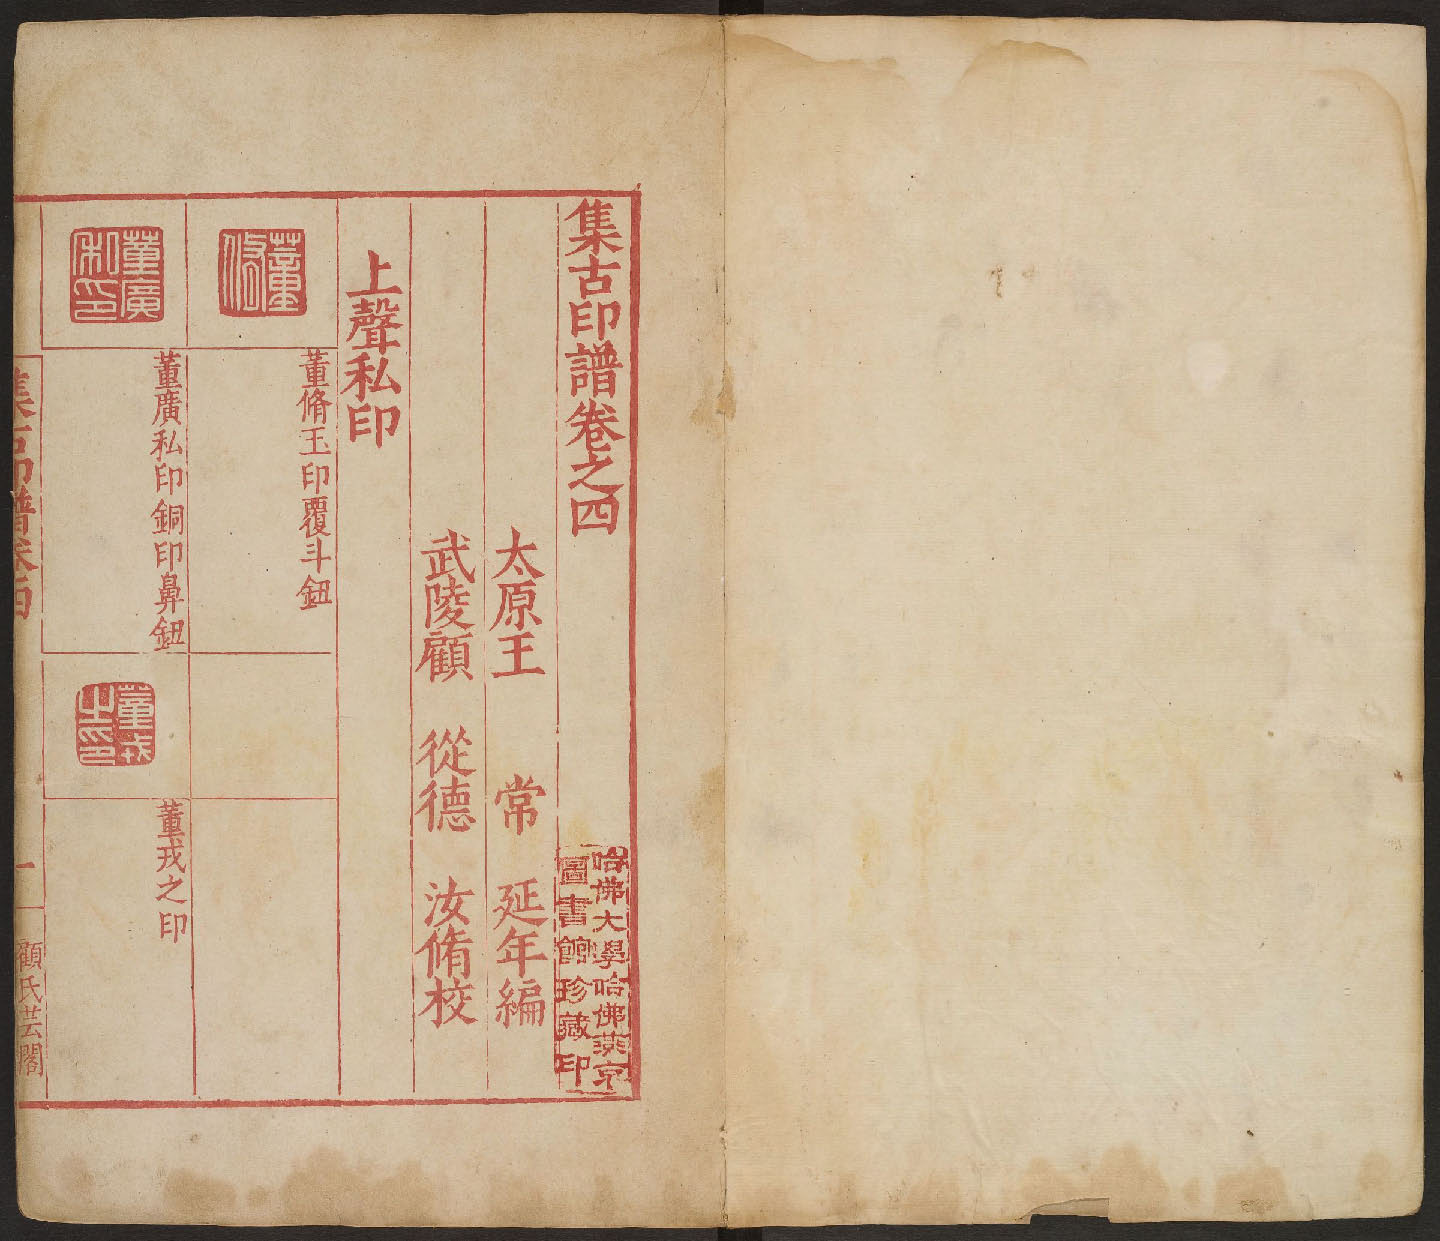 集古印譜卷之四
太原王 常 延年編
武陵顧 從德 汝脩校
上聲私印
董脩
董脩玉印覆斗鈕
董廣私印
董廣私印銅印鼻鈕
董戎之印
董戎之印
集古印譜卷四
一
顧氏芸閣
哈佛大學哈佛燕京
圖書館珍藏印